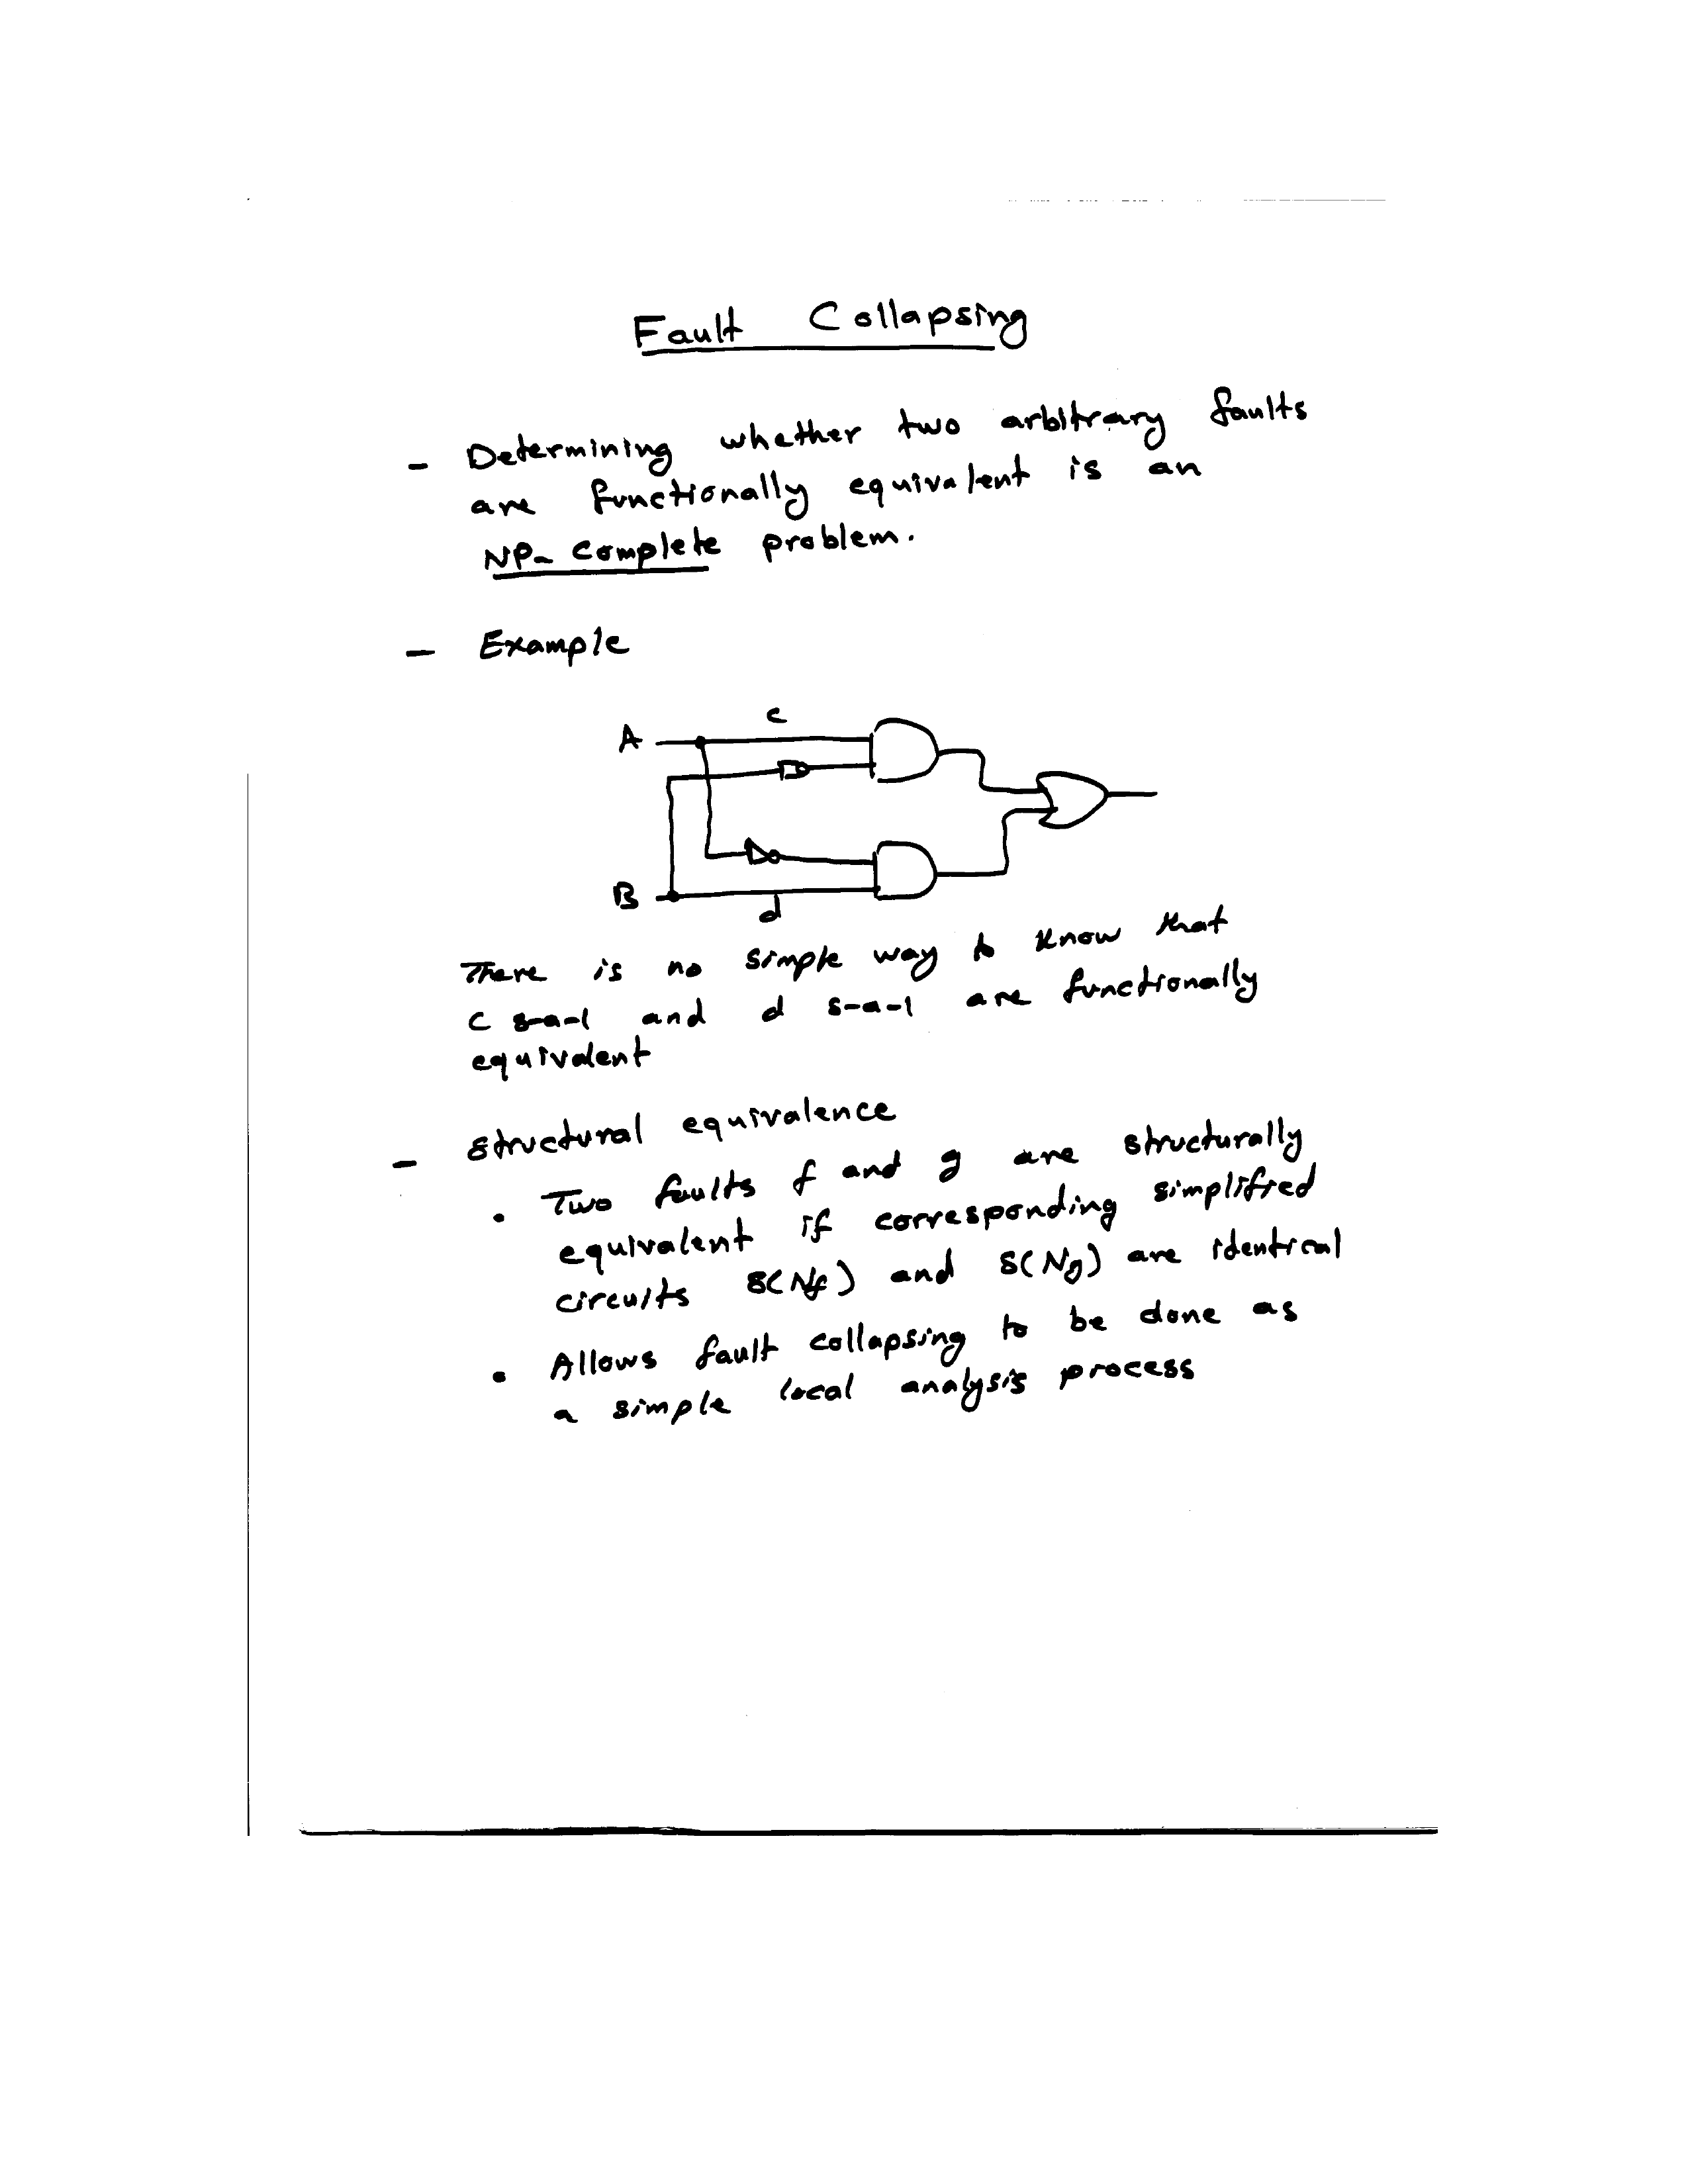 Fault Collapsing
- Determining whether two arbitrary faults
are functionally equivalent is an
NP-Complete problem.
- Example
A
c
B
d
There is no simple way to know that
c s-a-1 and d s-a-1 are functionally
equivalent
- Structural equivalence
• Two faults f and g are structurally
equivalent if corresponding simplified
circuits S(Nf) and S(Ng) are identical
• Allows fault collapsing to be done as
a simple local analysis process